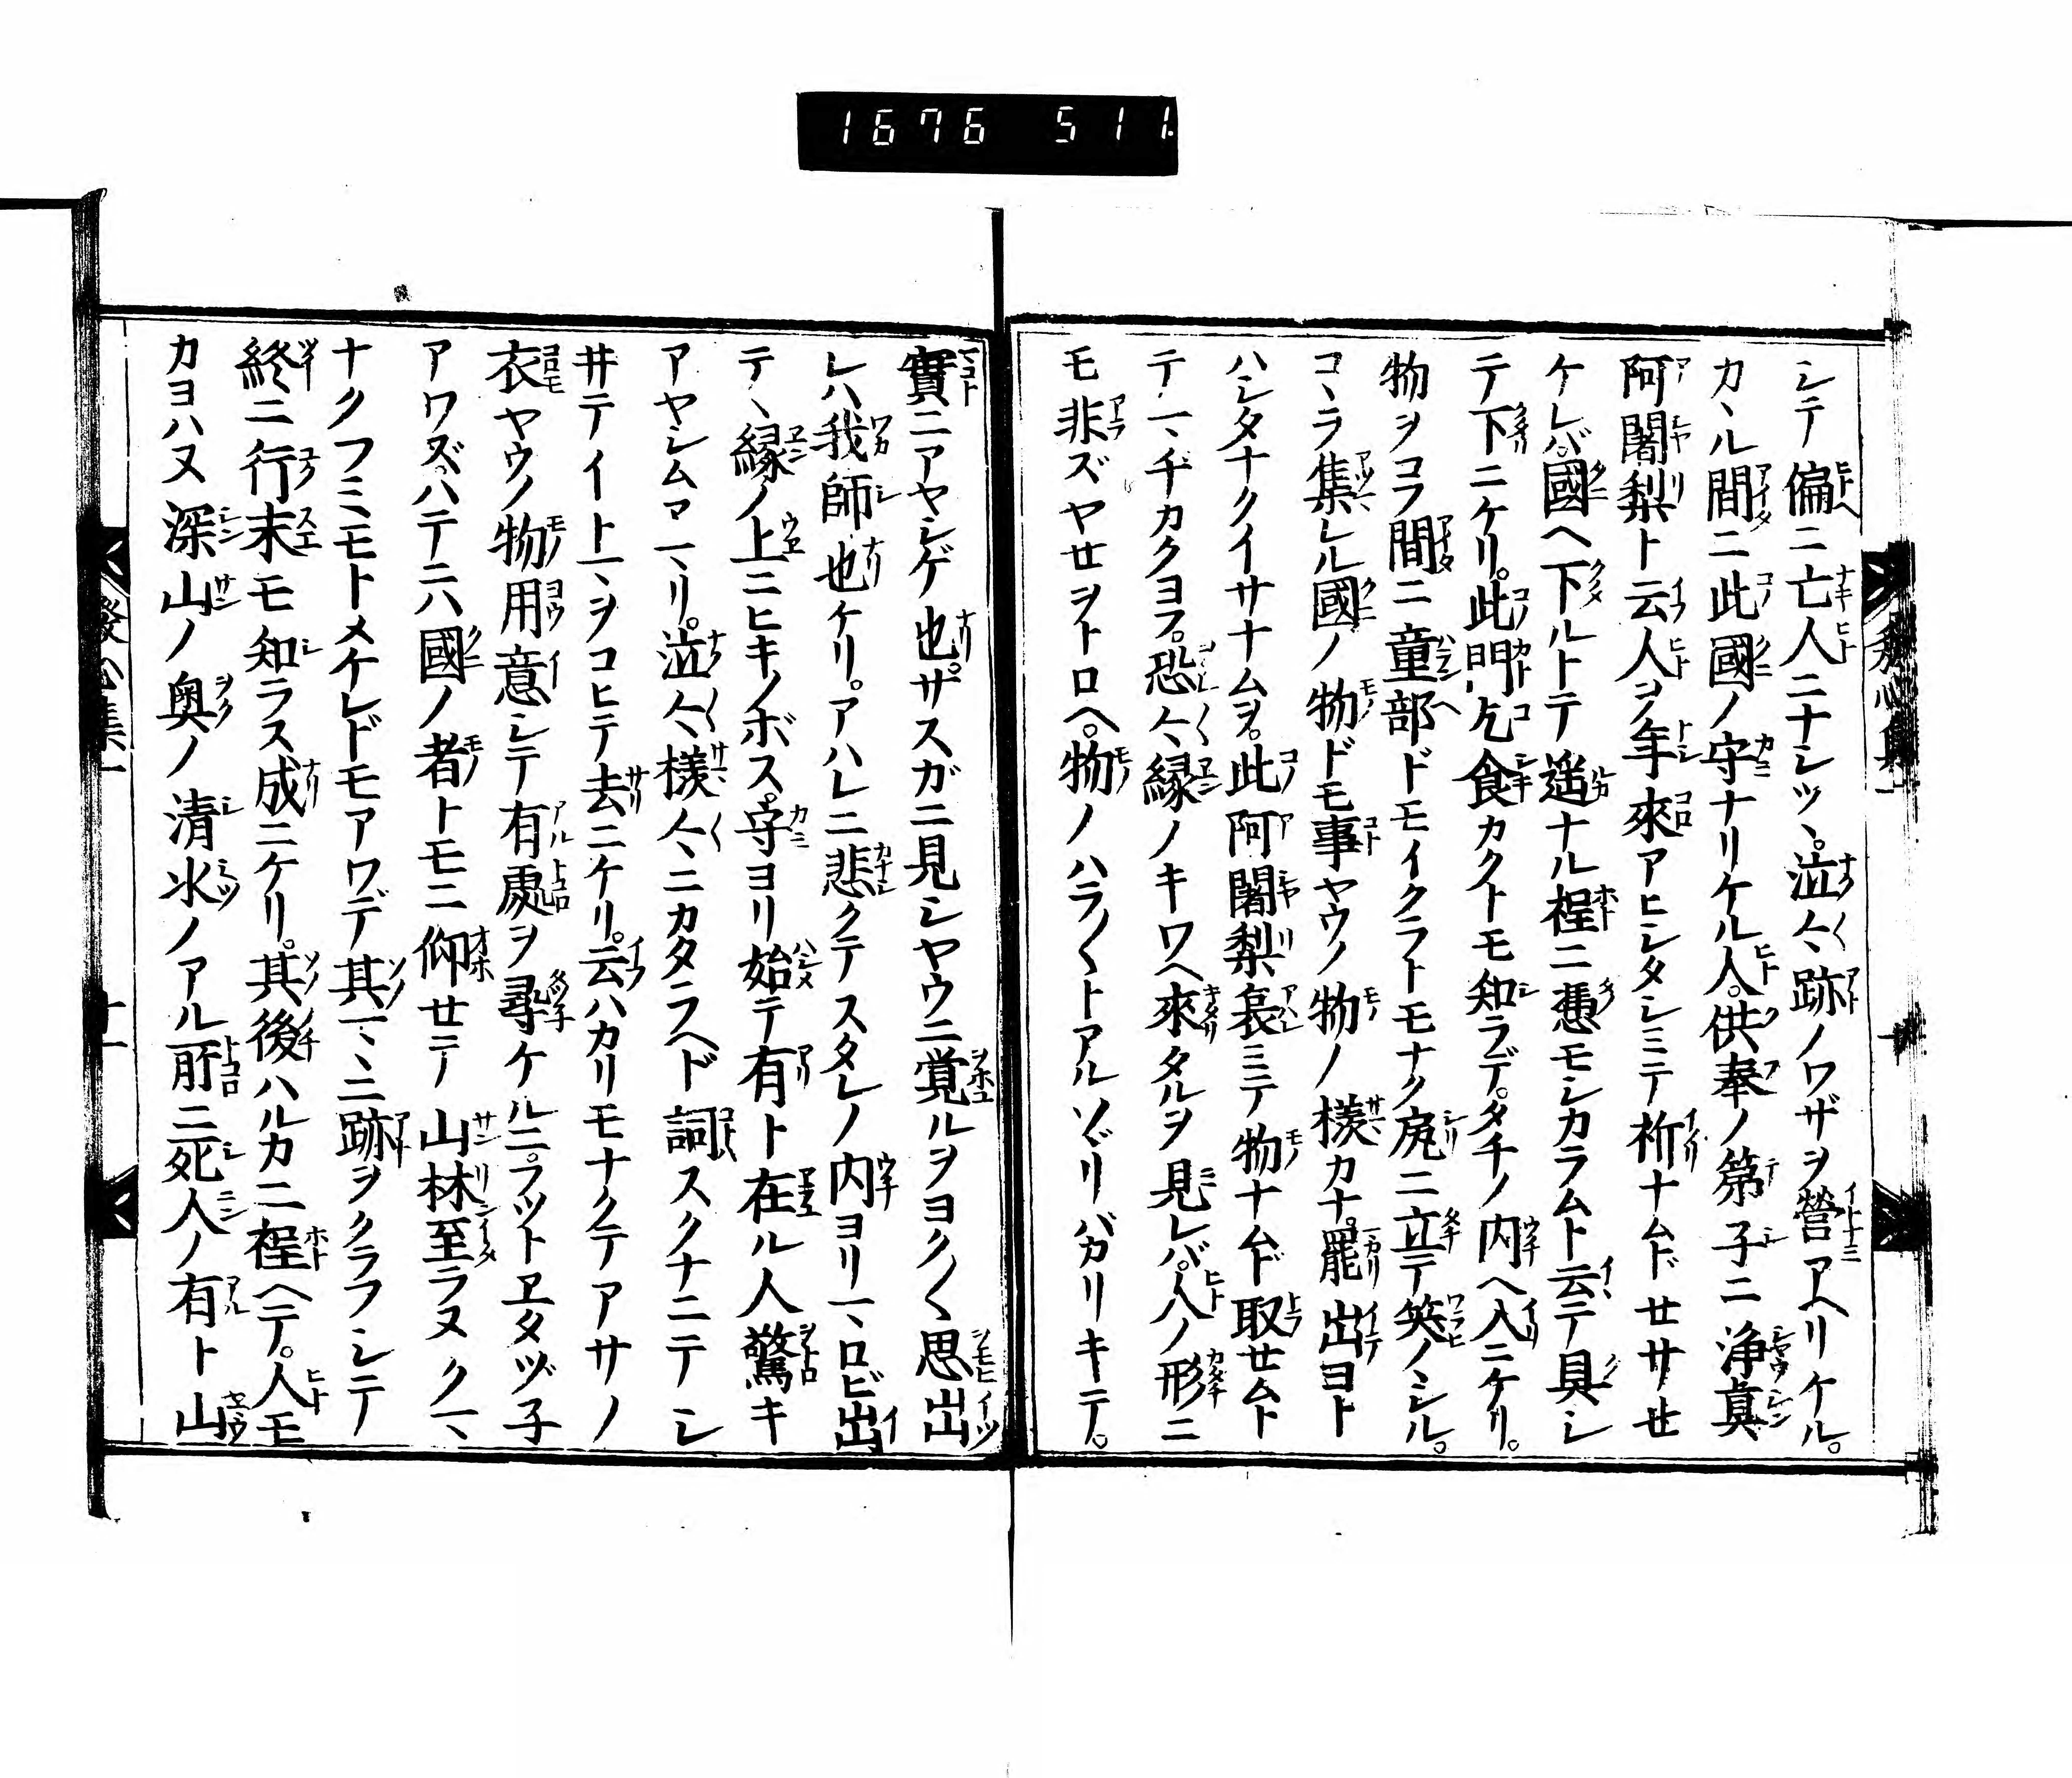 1676 511
シテ偏ニ亡人ニナシツヽ。泣々跡ノワザヲ營アヘリケル。
カヽル間ニ此國ノ守ナリケル人。供奉ノ第子ニ浄真
阿闍梨ト云人ヲ年來アヒシタシミテ祈ナムドセサセ
ケレバ。國ヘ下ルトテ遥ナル程ニ憑モシカラムト云テ具シ
テ下ニケリ。此門乞食カクトモ知ラデ。タチノ内ヘ入ニケリ。
物ヲコフ間ニ童部ドモイクラトモナク尻ニ立テ笑ノヽシル。
コヽラ集レル國ノ物ドモ事ヤウノ物ノ様カナ。罷出ヨト
ハシタナクイサナムヲ。此阿闍梨哀ミテ物ナムド取セムト
テマヂカクヨフ。恐々縁ノキワヘ來タルヲ見レバ。人ノ形ニ
モ非ズヤセヲトロヘ。物ノハラ〱トアルツヾリバカリキテ。
實ニアヤシゲ也。サスガニ見シヤウニ覚ルヲヨク〱思出
レハ我師也ケリ。アハレニ悲クテスタレノ内ヨリマロビ出
テヽ縁ノ上ニヒキノボス。守ヨリ始テ有ト在ル人驚キ
アヤシムマリ。泣々様々ニカタラヘド詞スクナニテシ
井テイトマヲコヒテ去ニケリ。云ハカリモナクテアサノ
衣ヤウノ物用意シテ有處ヲ尋ケルニ。フツトヱタヅ子
アワズ。ハテニハ國ノ者トモニ仰セテ山林至ラヌクマ
ナクフミモトメケレドモアワデ其マヽニ跡ヲクラフシテ
終ニ行末モ知ラス成ニケリ。其後ハルカニ程ヘテ。人モ
カヨハヌ深山ノ奥ノ清水ノアル所ニ死人ノ有ト山
發心集一
廿一